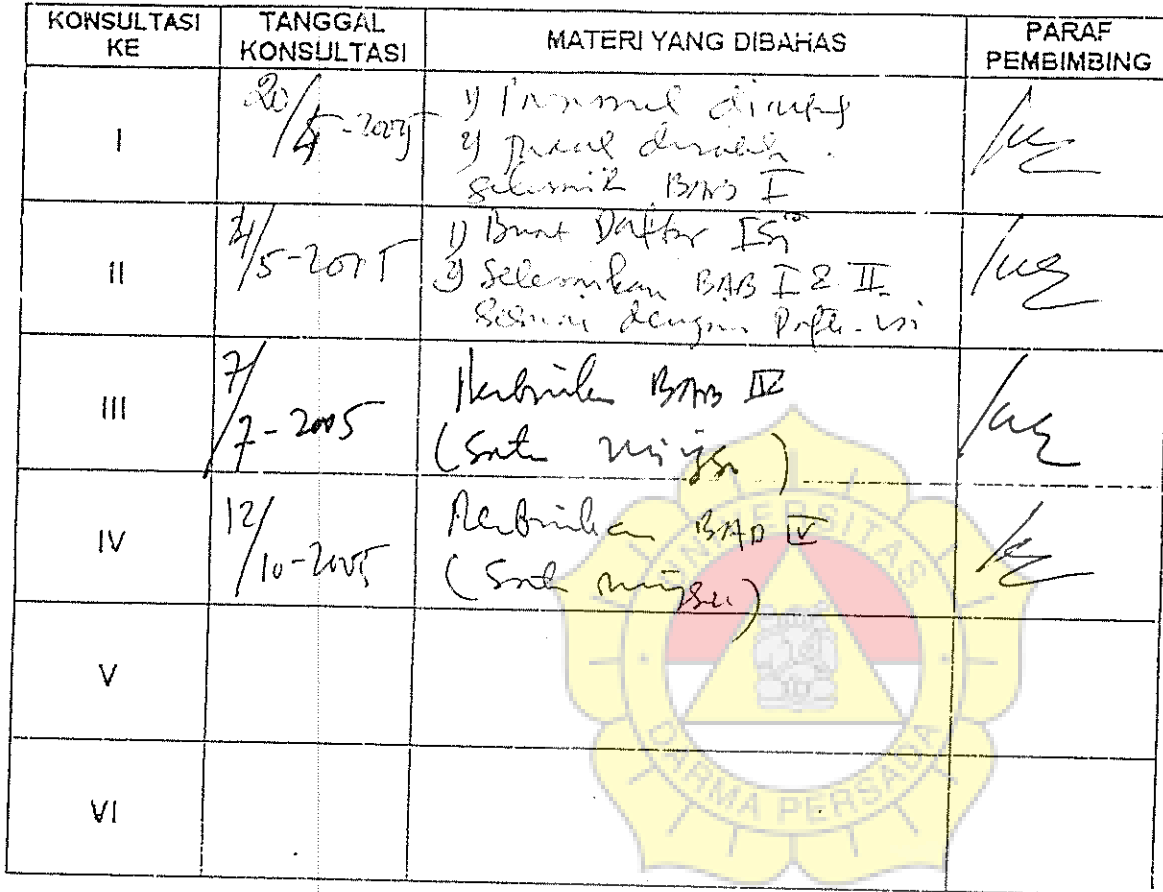 KONSULTASI KE
TANGGAL KONSULTASI
MATERI YANG DIBAHAS
PARAF PEMBIMBING
I
20/5-2005
1)
2)
BAB I
II
31/5-2005
1) Buat Daftar Isi
2) Selesaikan BAB I & II
Sesuai dengan Daftar isi
III
7/7-2005
BAB IV
(Satu minggu)
IV
12/10-2005
BAB IV
(Satu minggu)
V
VI
UNIVERSITAS
DARMA PERSADA